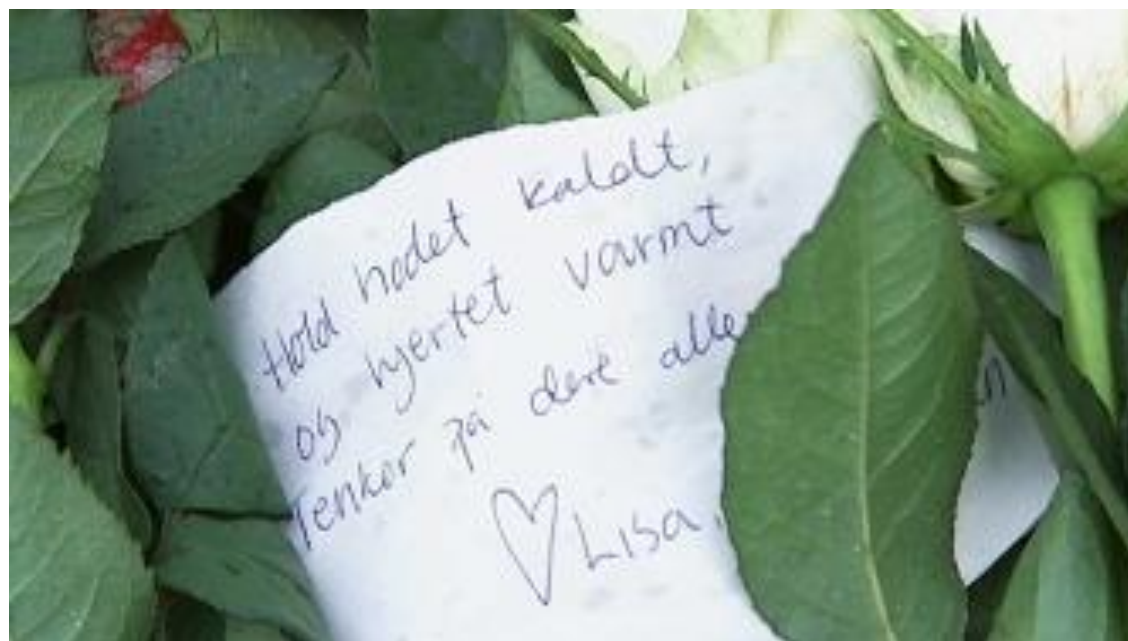 Hold hodet kaldt,
og hjertet varmt
Tenker på dere alle
♡ Lisa